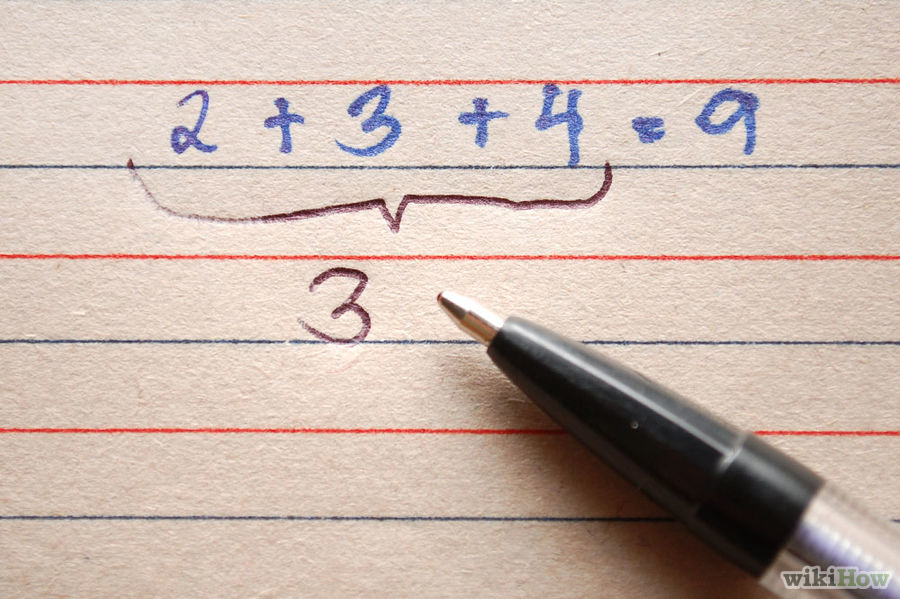 2 + 3 + 4 = 9
3
wikiHow